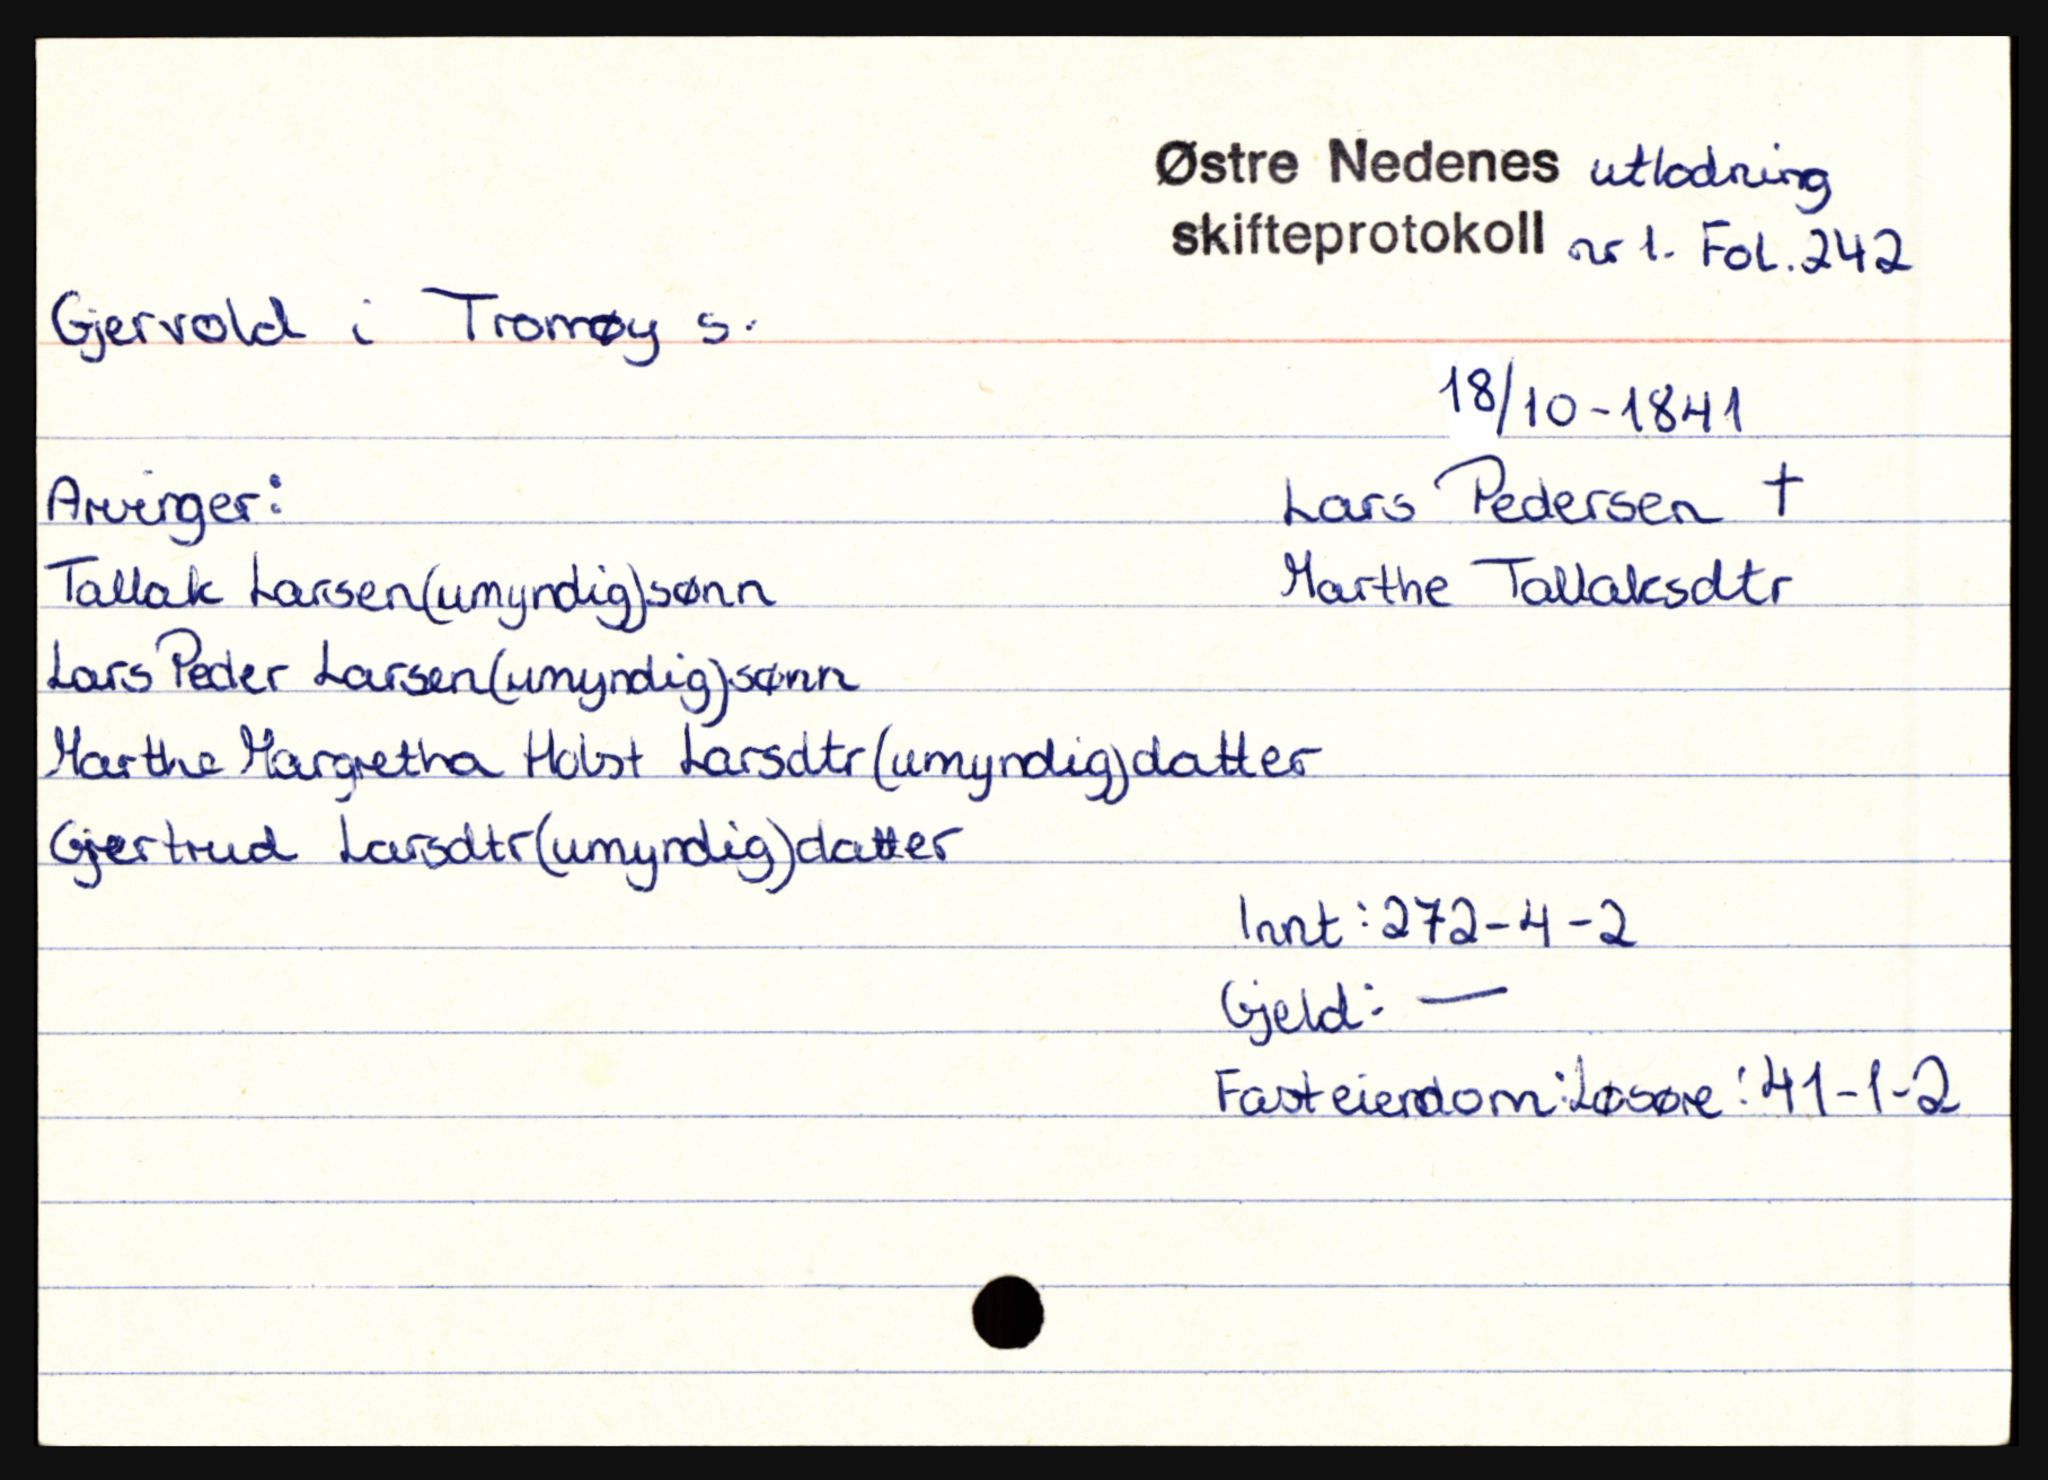 Østre Nedenes utlodning
skifteprotokoll nr 1. Fol. 242
Gjervold i Tromøy s.
18/10-1841
Arvinger:
Lars Pedersen †
Tallak Larsen(umyndig)sønn
Marthe Tallaksdtr
Lars Peder Larsen(umyndig)sønn
Marthe Margretha Holst Larsdtr(umyndig)datter
Gjertrud Larsdtr(umyndig)datter
Innt: 272-4-2
Gjeld: —
Fast eiendom: Løsøre: 41-1-2